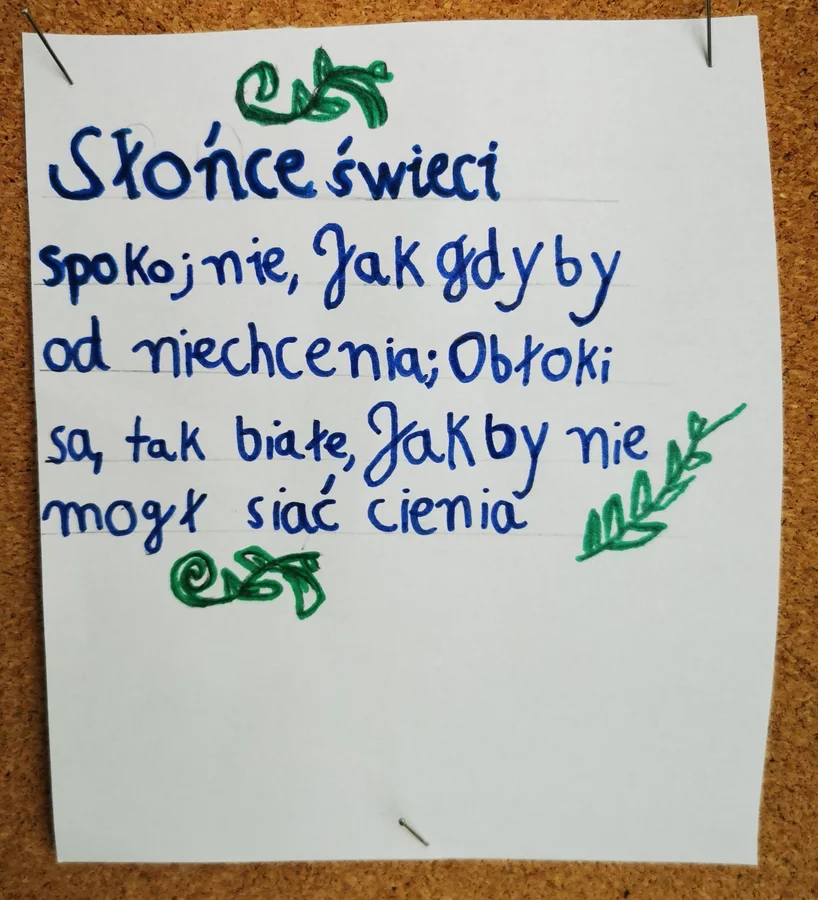 Słońce świeci
spokojnie, Jak gdyby
od niechcenia; Obłoki
są, tak białe, Jakby nie
mogł siać cienia